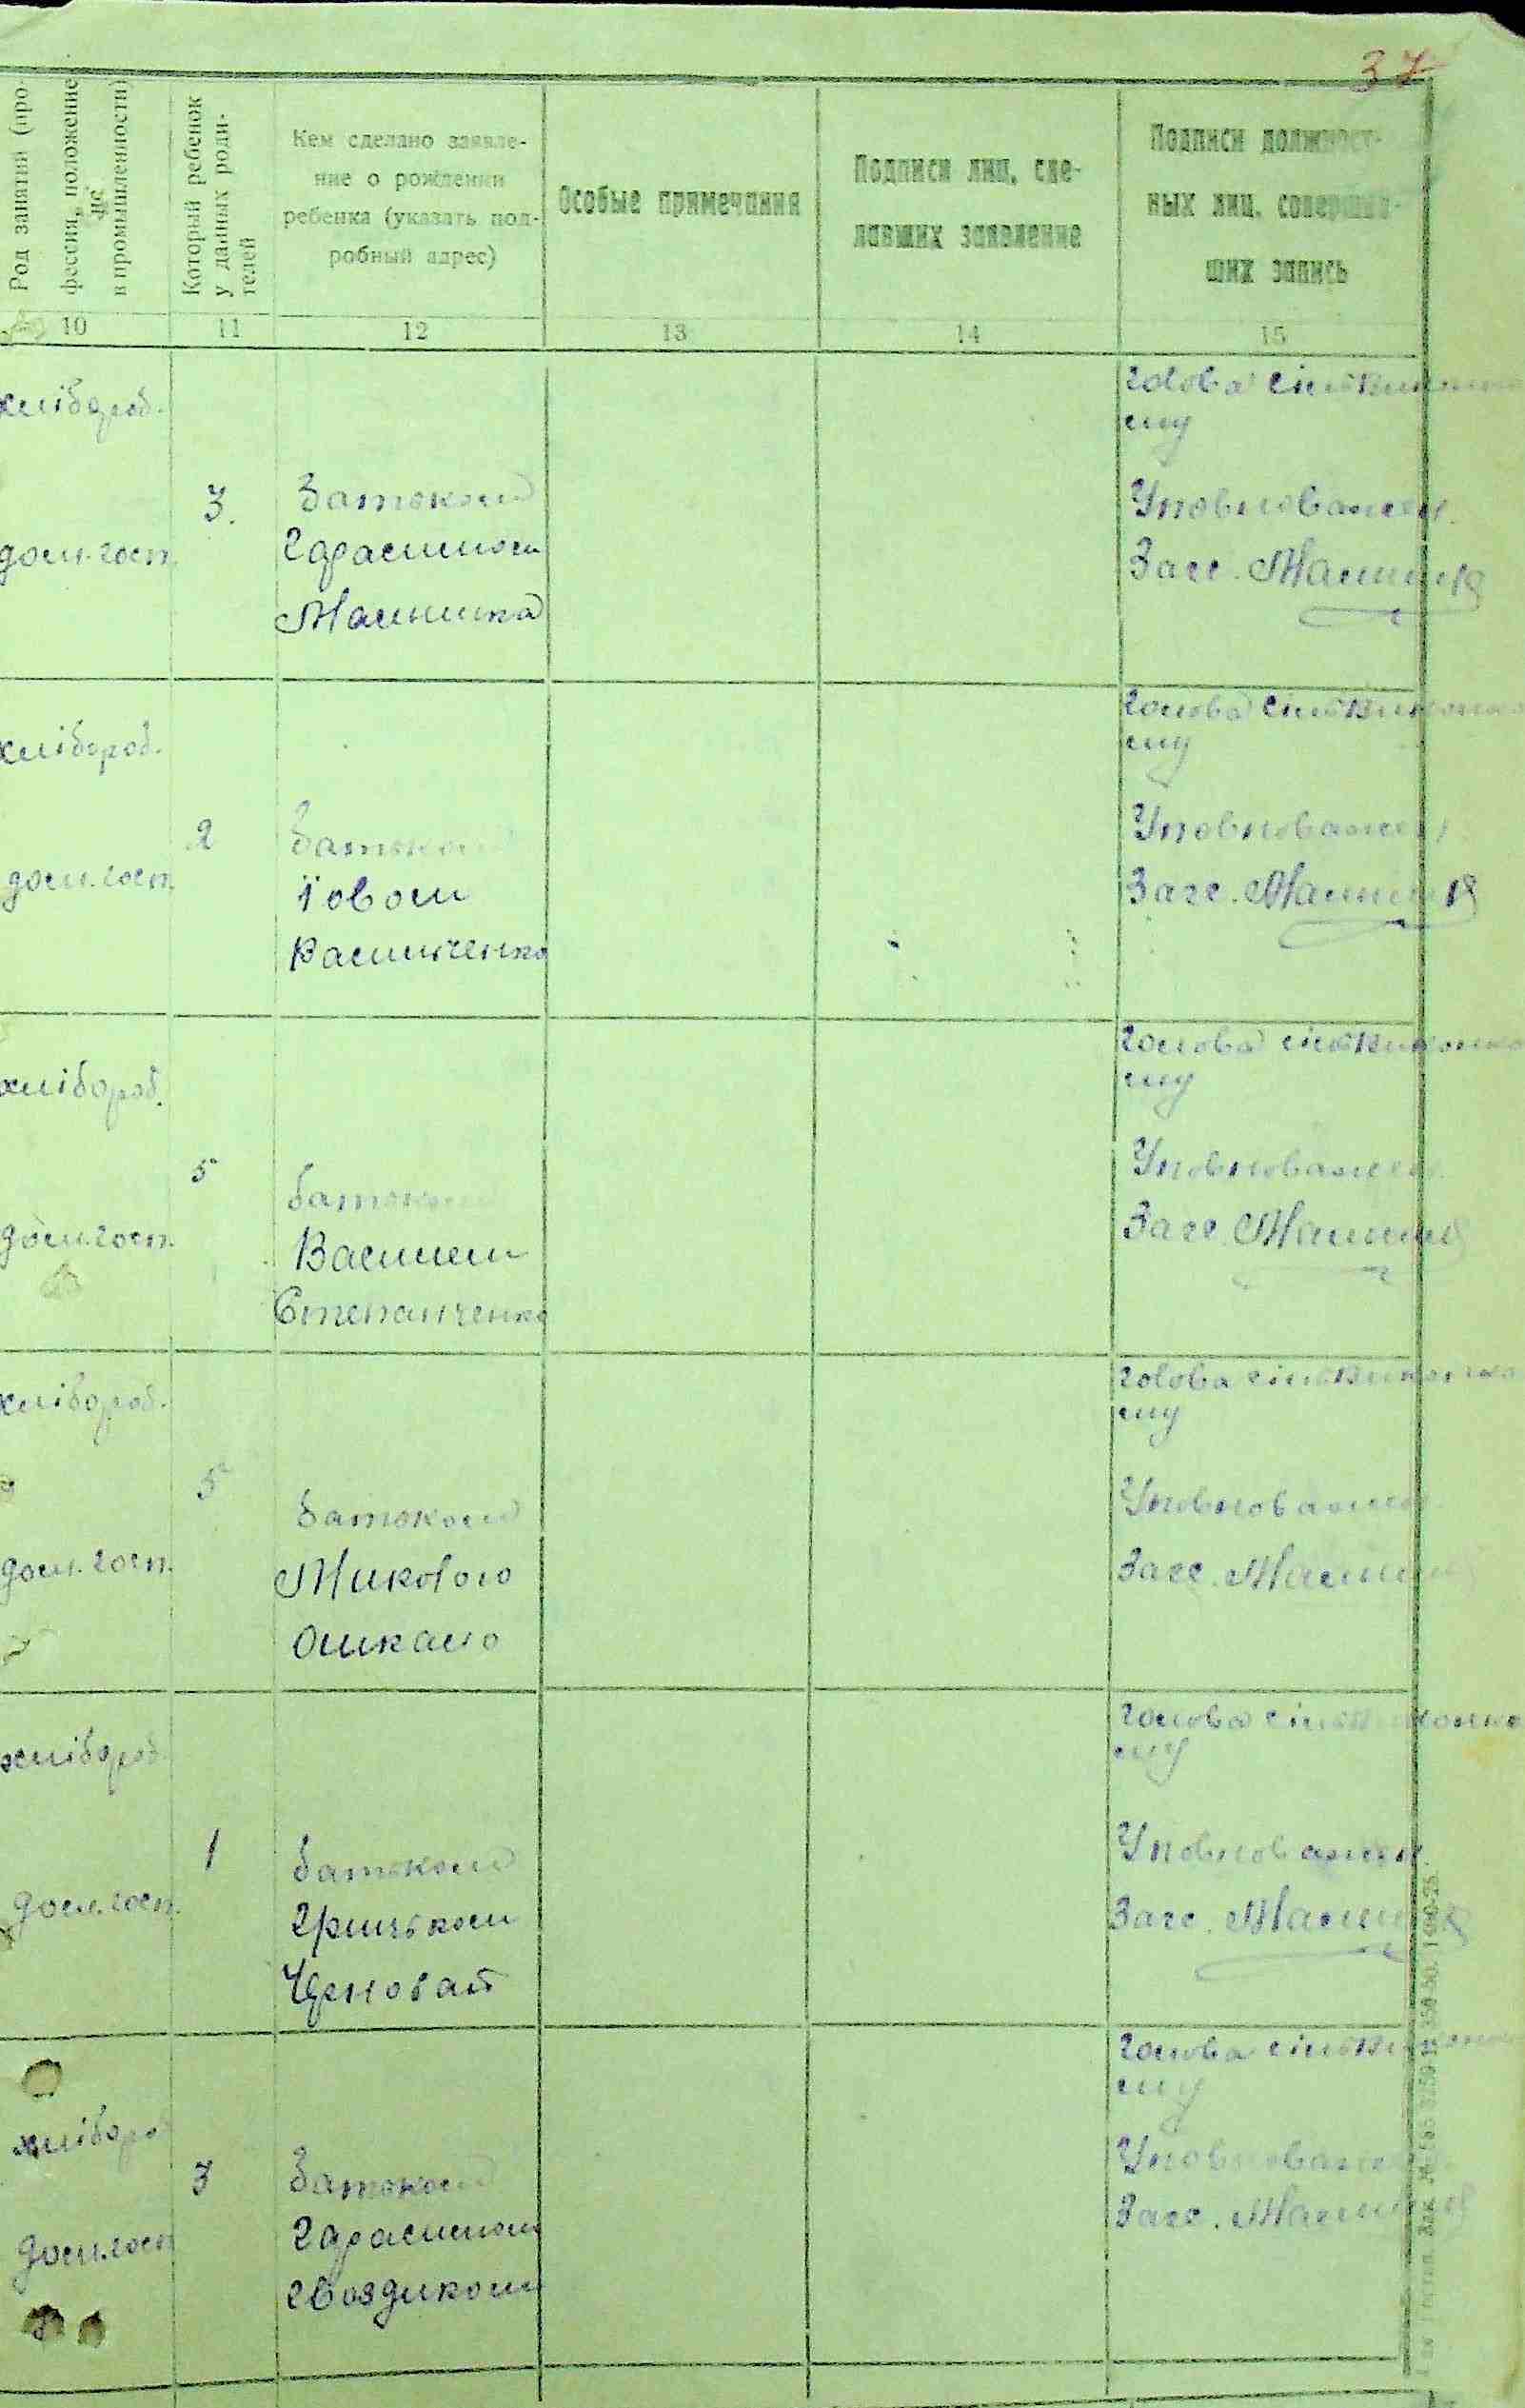 37
Род занятий (про-
фессия, положение
в промышленности)
Который ребенок
у данных роди-
телей
Кем сделано заявле-
ние о рождении
ребенка (указать под-
робный адрес)
Особые примечания
Подписи лиц, сде-
лавших заявление
Подписи должност-
ных лиц, совершив-
ших запись
10 11 12 13 14 15
хлібороб.
дом. госп.
3.
Батьком
Гарасимом
голова сільвиконко
му
Уповноважен.
Загс.
хлібороб.
дом. госп.
2
Батьком
Йовом
Васильченко
голова сільвиконко
му
Уповноважен.
Загс.
хлібороб.
дом. госп.
5
батьком
Василем
Степанченко
голова сільвиконко
му
Уповноважен.
Загс.
хлібороб.
дом. госп.
5
батьком
Миколою
голова сільвиконко
му
Уповноважен.
Загс.
хлібороб.
дом. госп.
1
батьком
Грицьком
голова сільвиконко
му
Уповноважен.
Загс.
хлібороб
дом. госп
3
Батьком
Гарасимом
Гвоздиком
голова сільвиконко
му
Уповноважен
Загс.